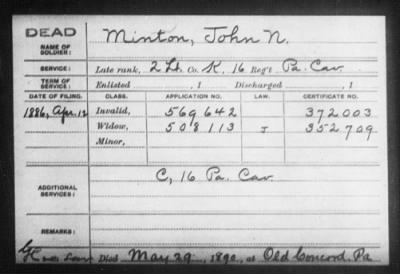 DEAD
NAME OF SOLDIER: Minton, John N.
SERVICE: Late rank, 2 Lt. Co. K, 16 Reg't Pa. Cav.
TERM OF SERVICE: Enlisted , 1 Discharged , 1
DATE OF FILING. CLASS. APPLICATION NO. LAW. CERTIFICATE NO.
1886, Apr. 12 Invalid, 569 642 372003
Widow, 508113 J 352709
Minor,
ADDITIONAL SERVICES: C, 16 Pa. Cav.
REMARKS:
Died May 29, 1890, at Old Concord, Pa